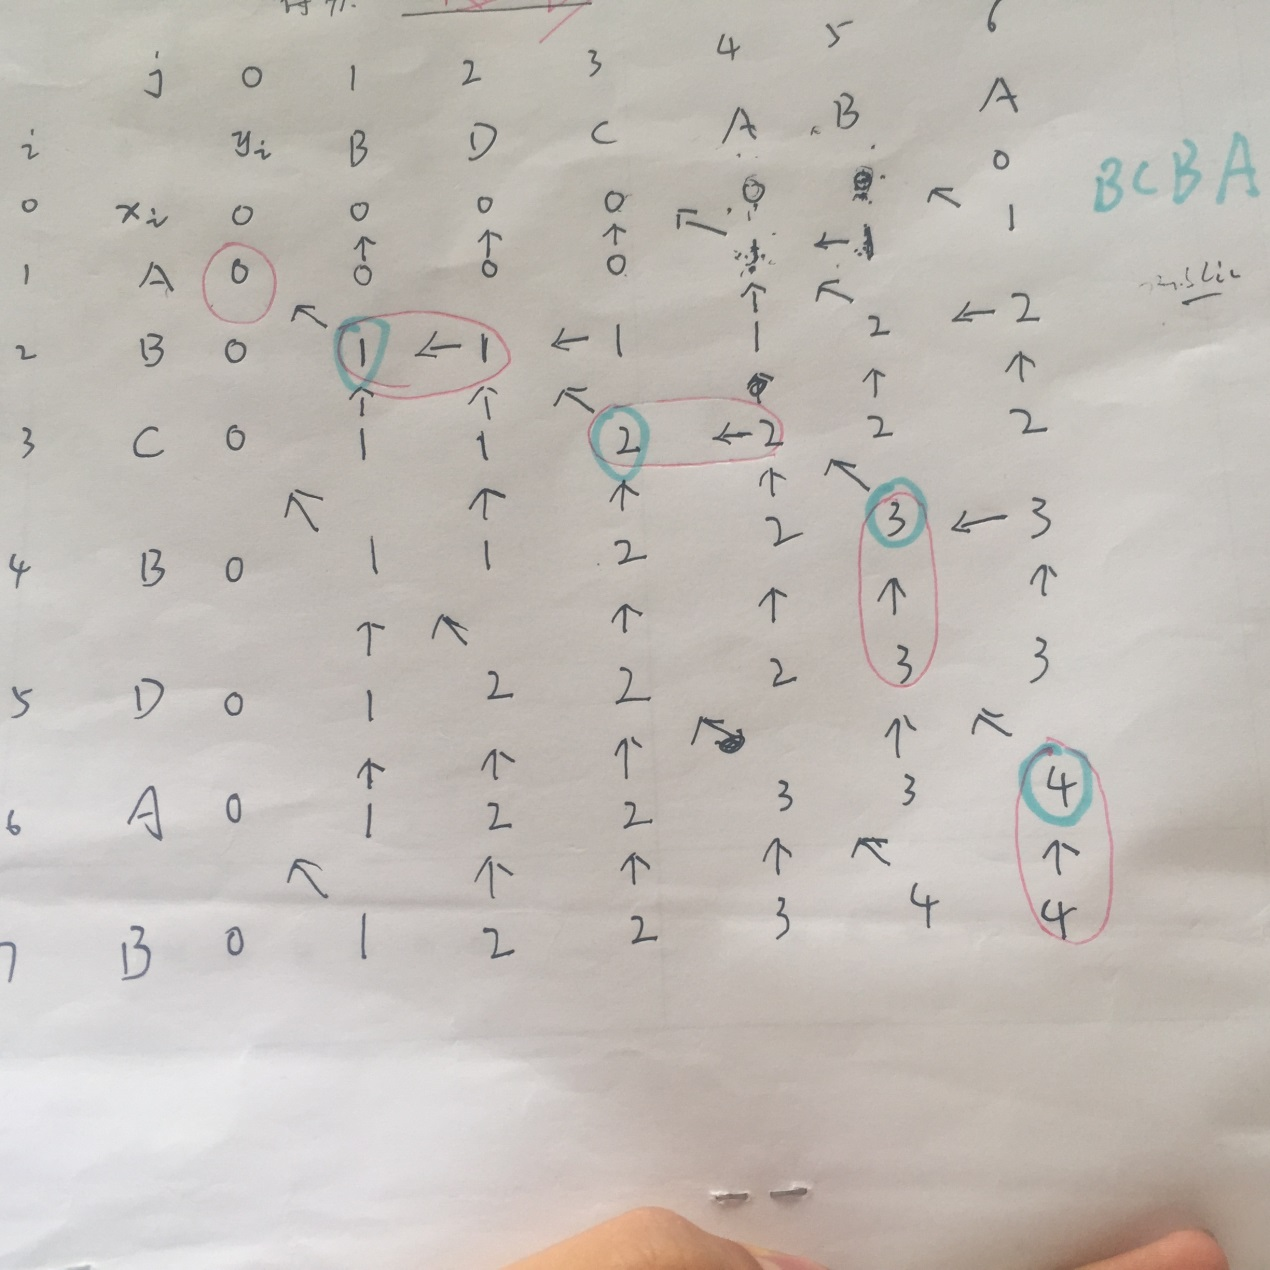 j 0 1 2 3 4 5 6
i yi B D C A B A
0 xi 0 0 0 0 0 0 0
↑ ↑ ↑ ↖ ← ↖
1 A 0 0 0 0 1 1 1
↖ ↑ ↖
2 B 0 1 ← 1 ← 1 1 2 ← 2
↑ ↑ ↖ ↑ ↑
3 C 0 1 1 2 ← 2 2 2
↖ ↑ ↑ ↑ ↖
4 B 0 1 1 2 2 3 ← 3
↑ ↖ ↑ ↑ ↑ ↑
5 D 0 1 2 2 2 3 3
↑ ↑ ↑ ↖ ↑ ↖
6 A 0 1 2 2 3 3 4
↖ ↑ ↑ ↑ ↖ ↑
7 B 0 1 2 2 3 4 4
BCBA